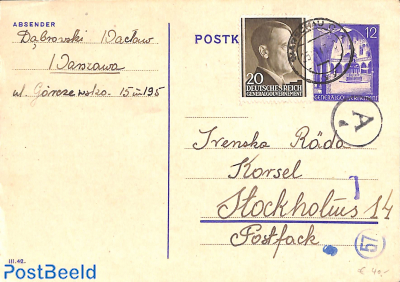 ABSENDER
Dąbrowski Wacław
Warszawa
ul. Górczewska. 15 m 195
POSTK
20
DEUTSCHES REICH
GENERALGOUVERNEMENT
WARSCHAU C
12
A
Irenska Råda
Korsel
Stockholms 14
Postfack
57
III.42.
PostBeeld